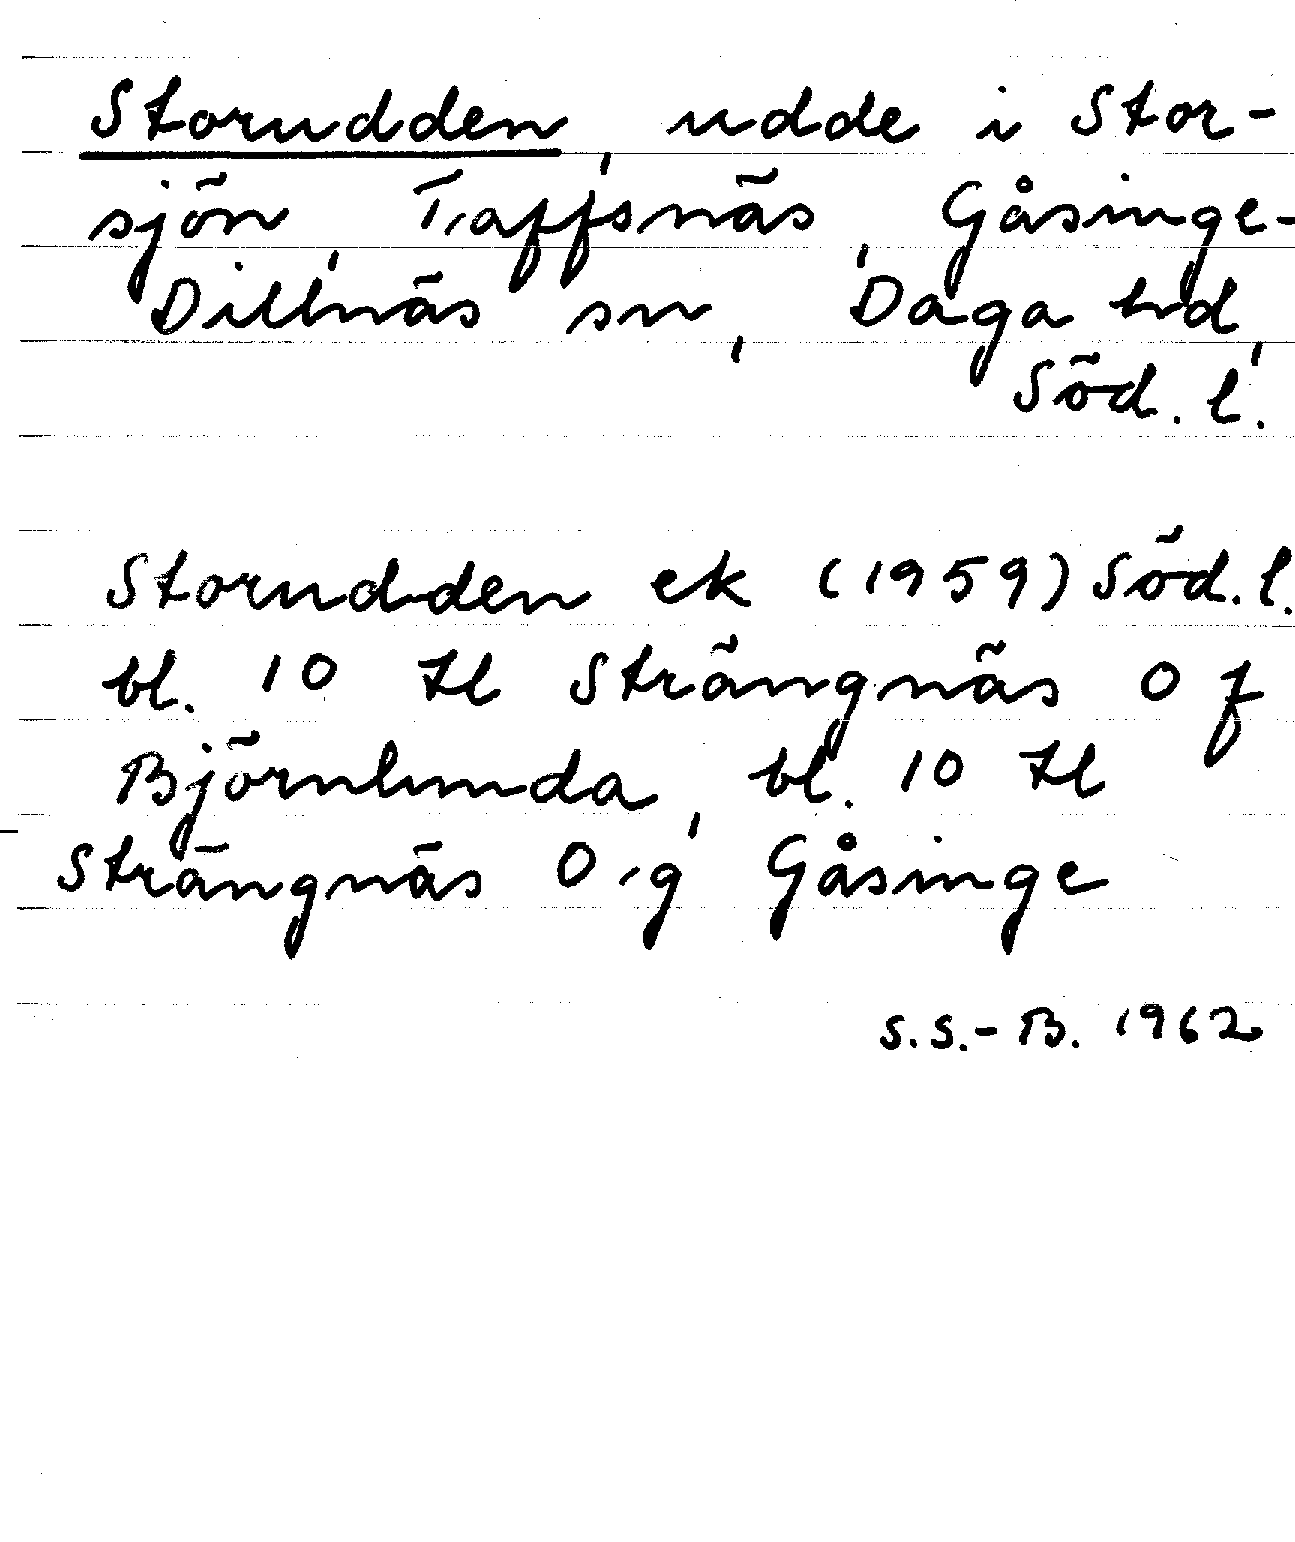 Storudden, udde i Stor-
sjön, Taffsnäs, Gåsinge-
Dillnäs sn, Daga hd,
Söd. l.
Storudden ek (1959) Söd. l.
bl. 10 tl Strängnäs O f
Björnlunda, bl. 10 tl
Strängnäs O ,g Gåsinge
S.S.-B. 1962